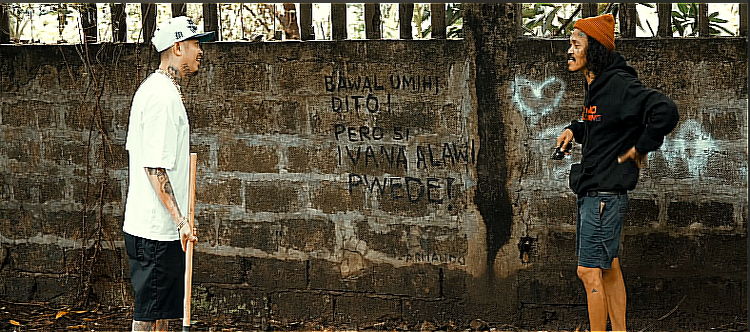 BAWAL UMIHI
DITO!
PERO SI
IVANA ALAWI
PWEDE!